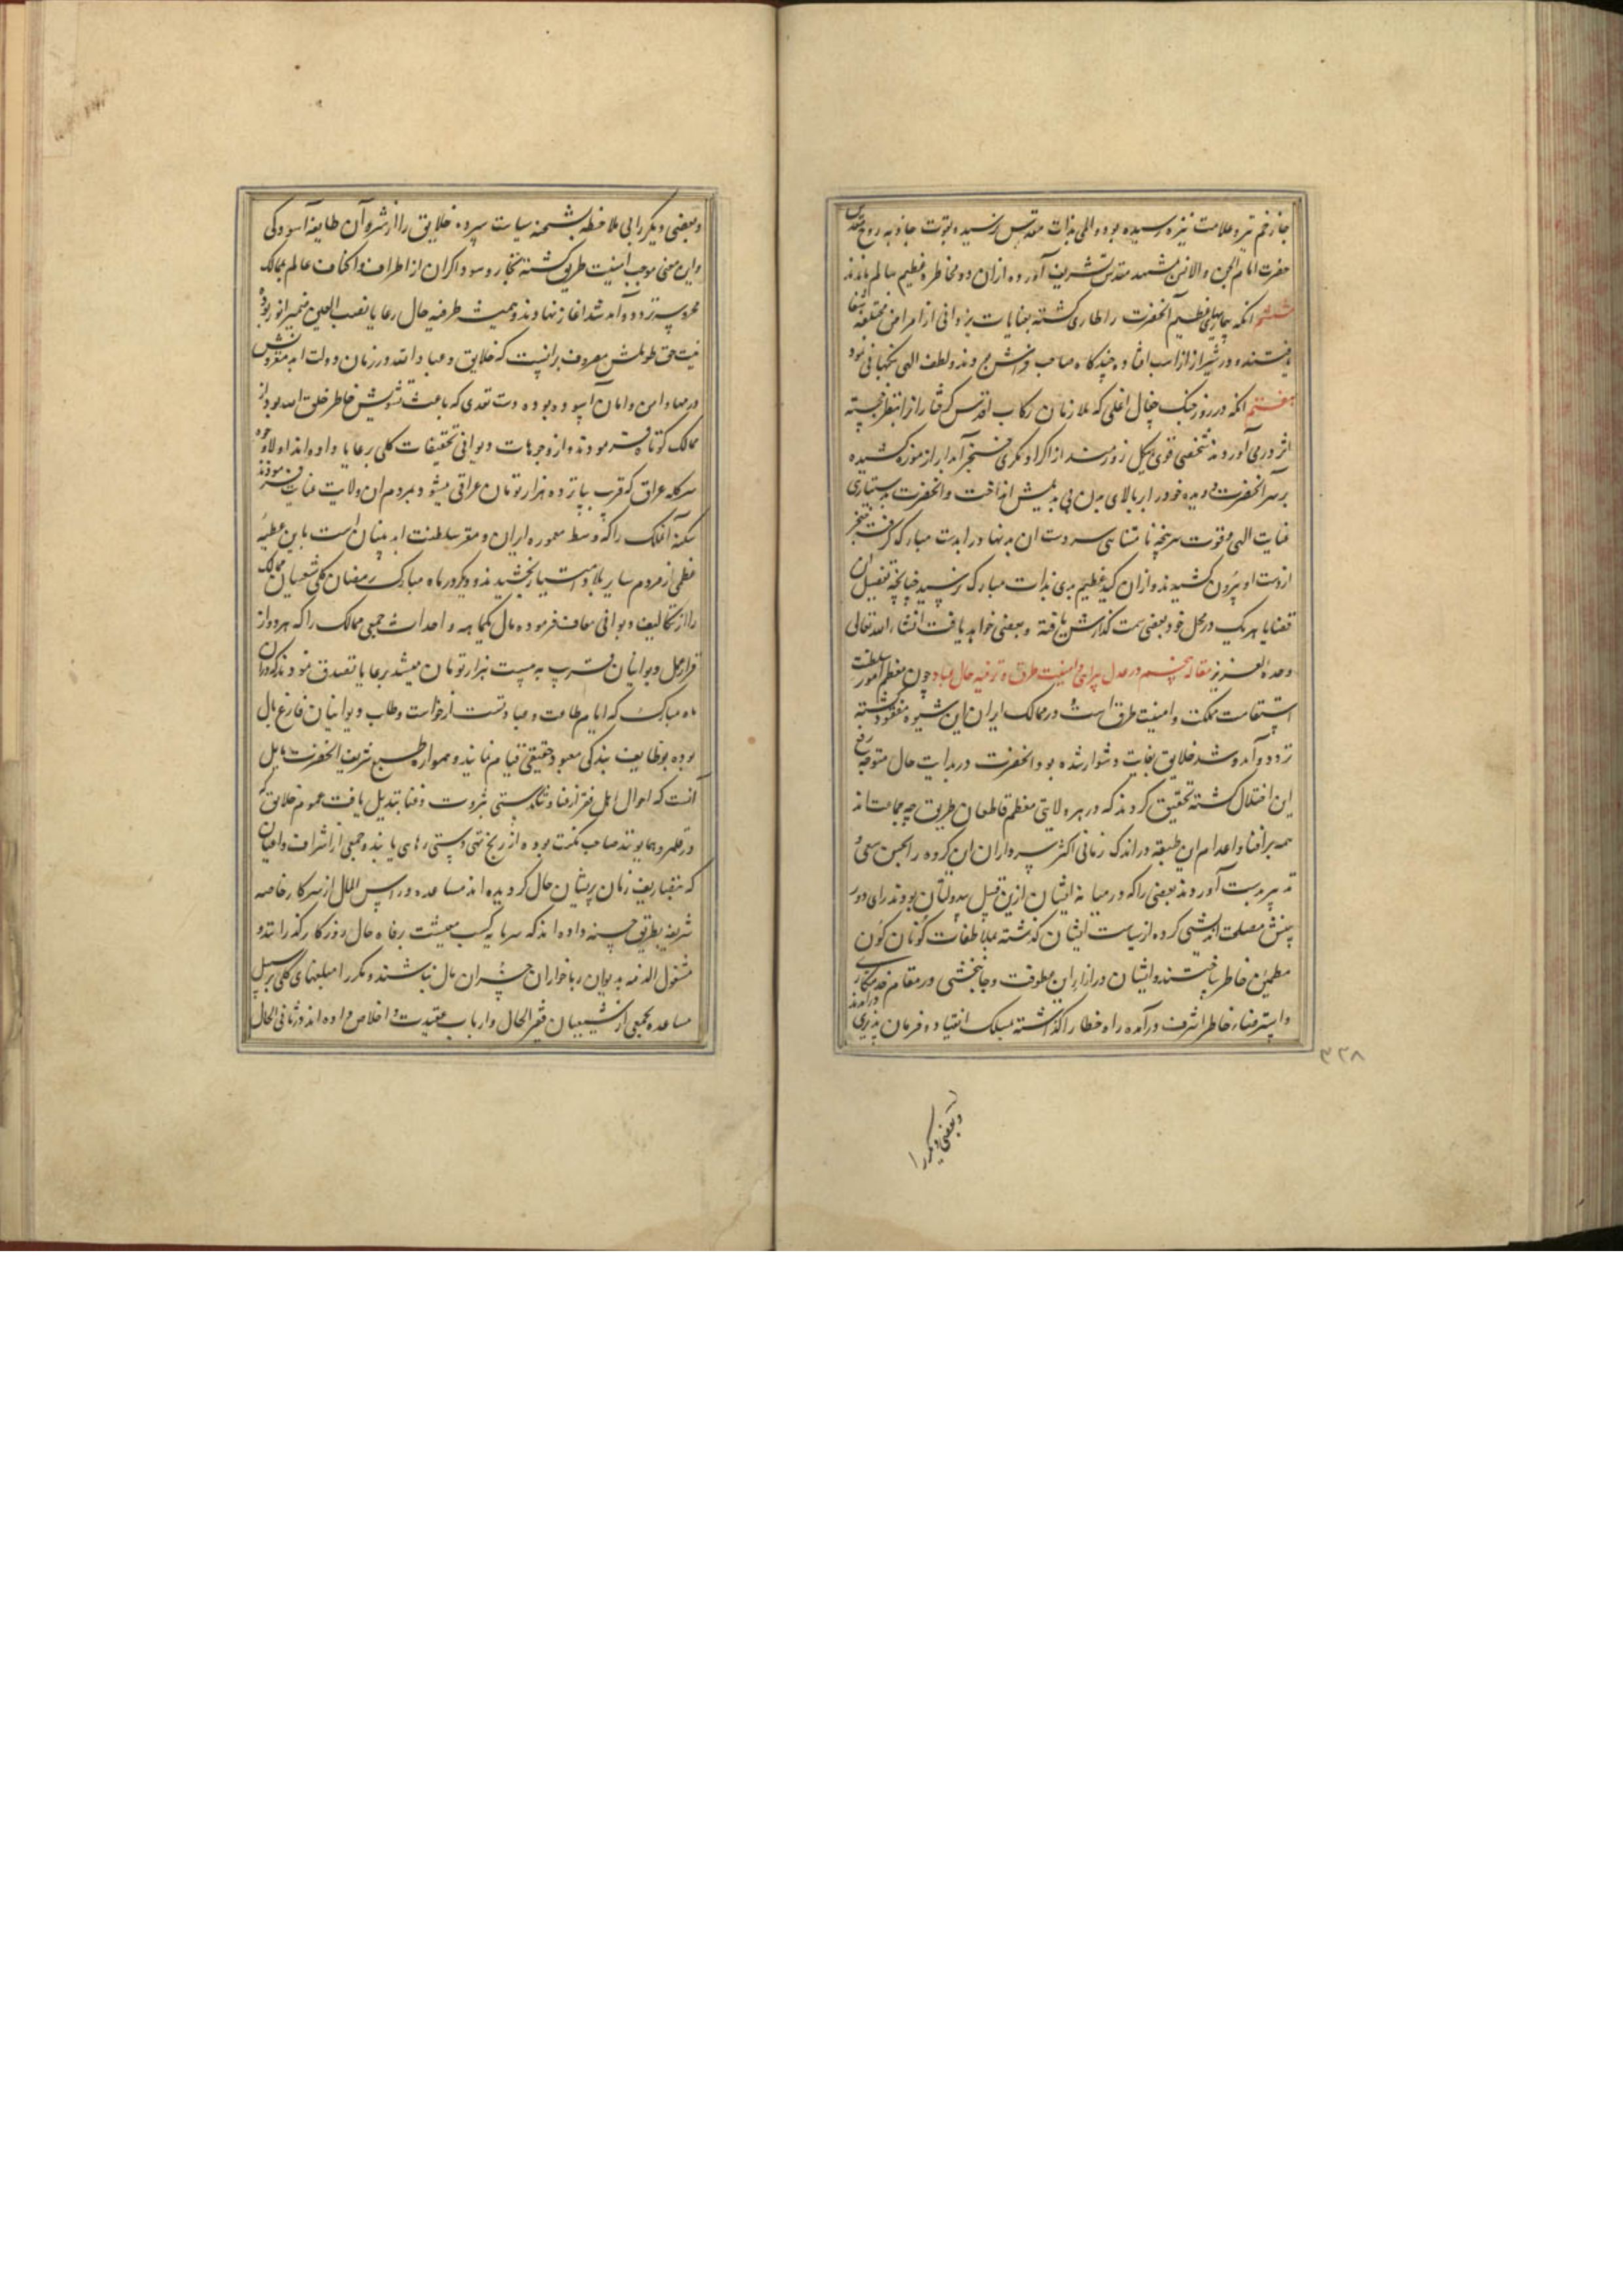 جا زخم تیر و علامت نیزه رسیده بود و المی بذات مقدس نرسیده بقوت جاذبه روح مقدس
حضرت امام الجن والانس بمشهد مقدس تشریف آورده از ان دو مخاطره عظیم سالم ماندند
ششم انکه بیماریهای عظیم آنحضرت را طاری گشته بعنایات یزدانی از امراض مختلفه شفا
یافتند و در شیراز از اسب افتاده چند گاه صاحب فراش بودند و لطف الهی نگهبانی نمود
هفتم انکه در روز جنک جغال اغلی که ملازمان رکاب اقدس گرفتار از انظر خجسته
اثر در می آوردند شخصی قوی هیکل زورمند از اکراد مکری خنجر آبدار از موزه کشیده
بر سر آنحضرت دویده خود را ببالای بدن بی بدیلش انداخت و انحضرت بدستیاری
عنایت الهی و قوت سرپنجه نامتناهی سر دست ان بدنهاد را بدست مبارک گرفته خنجر
از دست او بیرون کشیدند و از ان کید عظیم بدی بذات مبارک نرسید چنانچه تفصیل ان
قضایا هر یک در محل خود بعضی سمت گذارش یافته و بعضی خواهد یافت انشاء الله تعالی
وحده العزیز مقاله پنجم در عدل پیرایی و امنیت طرق و ترفیه حال عباد چون معظم امور سلطنت
استقامت مملکت و امنیت طرق است و در ممالک ایران این شیوه مفقود گشته
تردد و آمد و شد خلایق بغایت دشوار شده بود انحضرت در بدایت حال متوجه رفع
این اختلال گشته تحقیق کردند که در هر ولایتی معظم قاطعان طریق چه جماعت اند
همه بر افنا و اعدام این طبقه در اندک زمانی اکثر سرداران ان گروه را بحسن سعی و
تدبیر بدست آوردند بعضی را که در میانه ایشان ازین قبیل بیدولتان بودند رای دور
بینش مصلحت اندیشی کرده از سیاست ایشان گذشته بملاطفات گوناگون
مطمئن خاطر ساختند و ایشان در ازاء این عطوفت و جانبخشی در مقام خدمتکاری
و استرضاء خاطر اشرف درآمده راه خطا را گذاشته بمسلک انقیاد و فرمان پذیری درآمدند
وبعضی دیگر را
۳۳۸
وبعضی دیگر را بی ملاحظه بشحنه سیاست سپرده خلایق را از شر آن طایفه آسودگی
واین معنی موجب امنیت طریق گشته تجار و سوداگران از اطراف و اکناف عالم بممالک
محروسه تردد و آمد شد آغاز نهادند و همیشه ترفیه حال رعایا نصب العین ضمیر انور بوده
نیت حق طویتش معروف برانست که خلایق و عباد الله در زمان دولت ابد مقرونش
در مهاد امن و امان آسوده بوده دست تعدی که باعث تشویش خاطر خلق الله بود از
ممالک کوتاه فرمودند و از وجوهات دیوانی تخفیفات کلی برعایا داده اند اولا وجوه
سر گله عراق که قریب بپانزده هزار تومان عراقی میشود بمردم ان ولایت عنایت فرمودند
سکنه آنملک را که وسط معموره ایران و مقر سلطنت ابد بنیان است باین عطیه
عظمی از مردم سایر بلاد امتیاز بخشیدند و دیگر در ماه مبارک رمضان کل شیعیان ممالک
را از تکالیف دیوانی معاف فرموده مال یکماهه و احداث جمیع ممالک را که هر دو از
قرار عمل دیوانیان قریب به بیست هزار تومان میشد برعایا تصدق نمودند که در ان
ماه مبارک که ایام طاعت و عبادتست از خواست و طلب دیوانیان فارغ بال
بوده بوظایف بندگی معبود حقیقی قیام نمایند و همواره طبع شریف انحضرت مایل
آنست که احوال اهل فقر از عنا و تنگدستی بثروت و غنا تبدیل یافته عموم خلایق که
در قلمرو همایونند صاحب مکنت بوده از رنج تهی دستی رهایی یابند و جمعی از اشراف و اعیان
که بتصاریف زمان پریشان حال گردیده اند مساعده و راس المال از سرکار خاصه
شریفه بطریق حسنه داده اند که سرمایه کسب معیشت برفاه حال روزگار گذرانند و
مشغول الذمه بدیون رباخواران خسران مال نباشند و مکررا مبلغهای کلی بر سبیل
مساعده بجمعی از شیعیان فقیر الحال و ارباب عقیدت و اخلاص داده اند و ثانی الحال